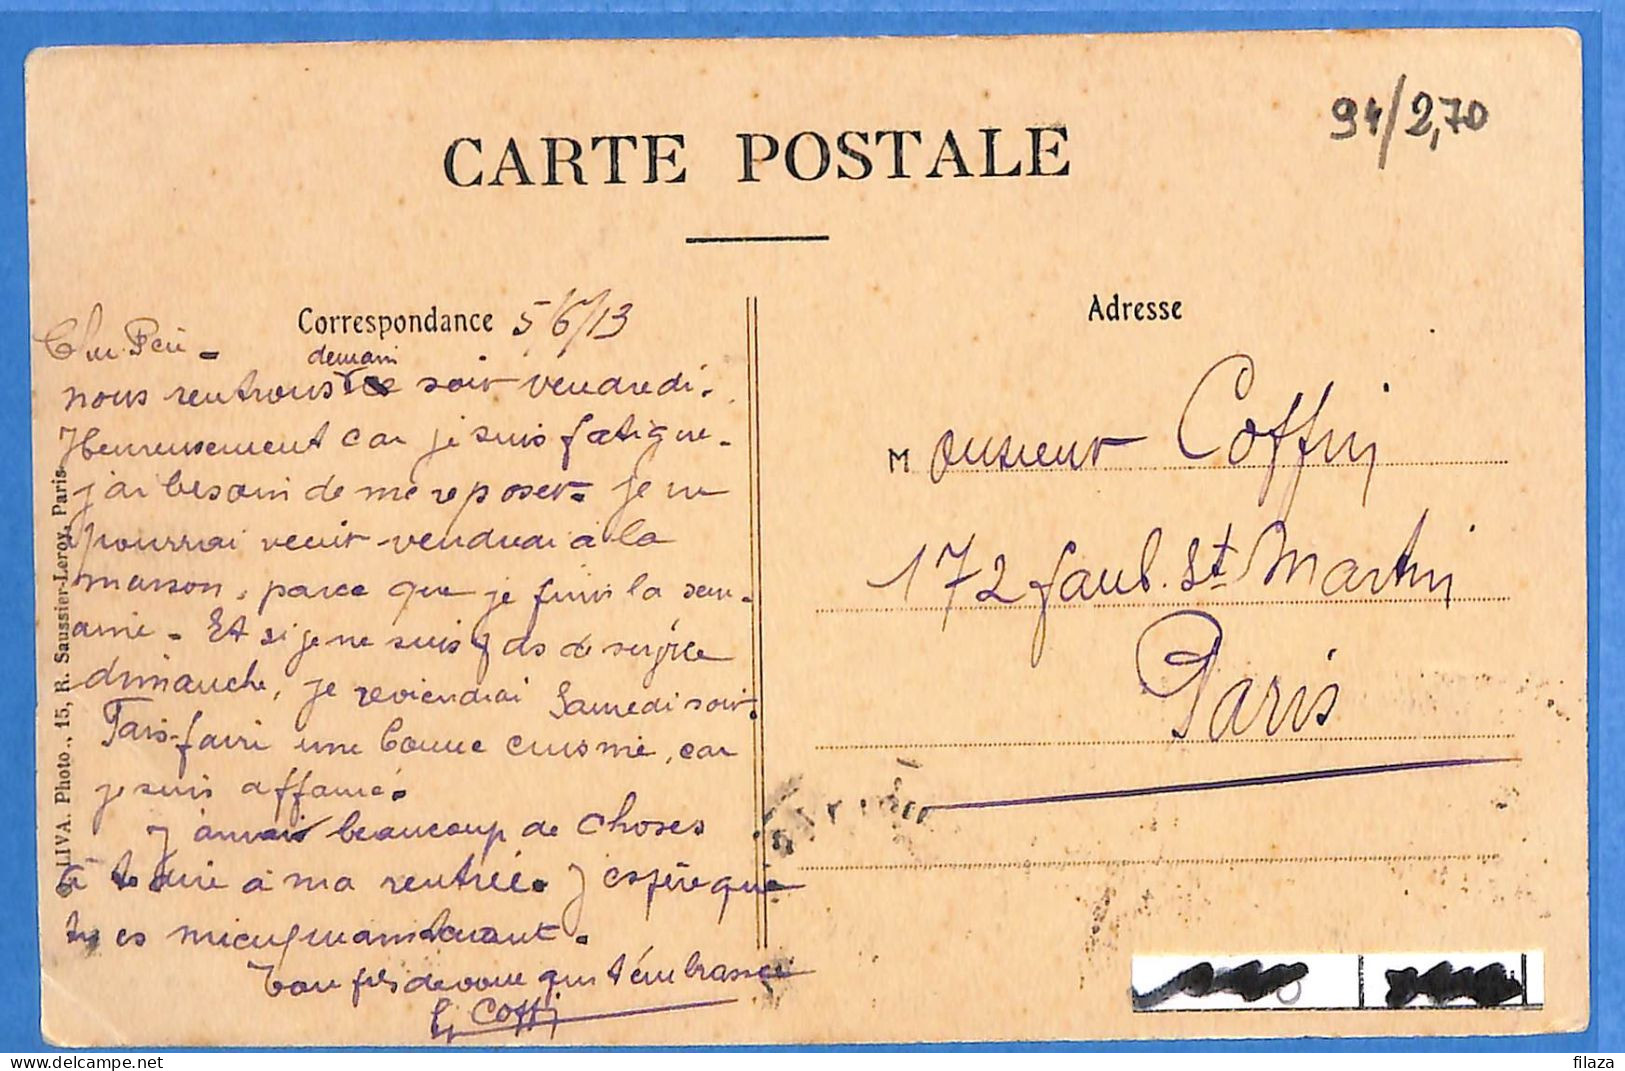 94/2,70
CARTE POSTALE
Correspondance 5/6/13
Adresse
demain
nous rentrons soir vendredi.
Heureusement car je suis fatigue.
j'ai besoin de me reposer. je ne
pourrai venir vendredi à la
maison, parce que je finis la sem-
aine. Et si je ne suis pas de service
dimanche, je reviendrai Samedi soir.
Fais faire une bonne cuisine, car
je suis affamé.
J'aurais beaucoup de choses
à te dire à ma rentrée. J'espère que
tu es mieux maintenant.
Ton fils dévoué qui t'embrasse
Coffin
Monsieur Coffin
172 faub. St Martin
Paris
LIVA. Photo., 15, R. Saussier-Leroy, Paris
filaza